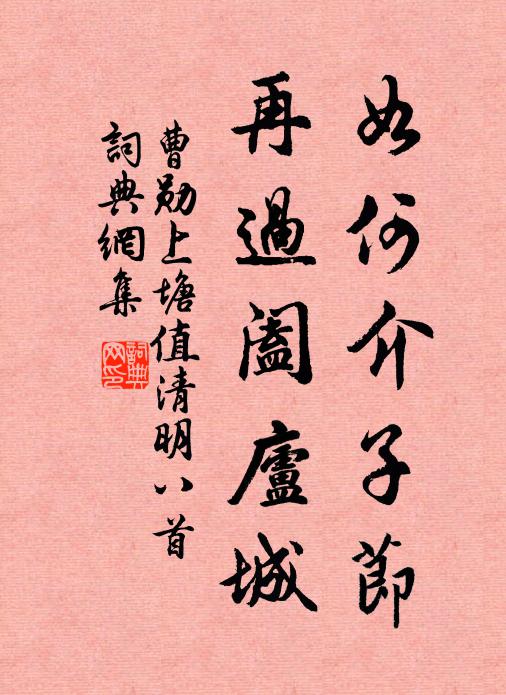 如何介子節
再過闔廬城
曹勛上塘值清明八首
詞典網集
詞典网印